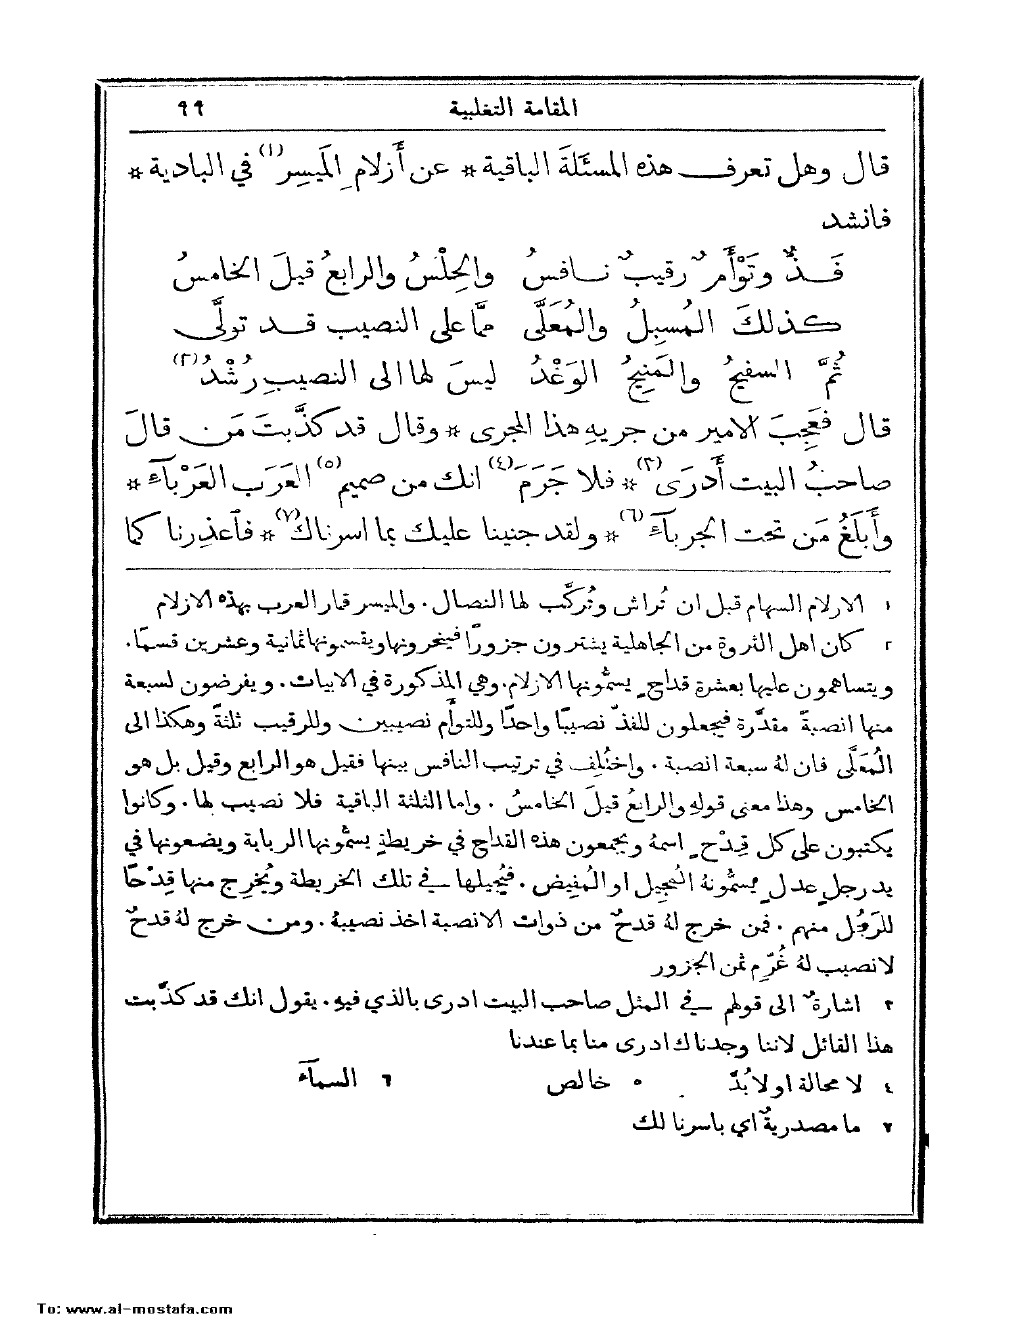 المقامة التغلبية ٩٩
قال وهل تعرف هذه المسئلَةَ الباقية * عن أَزلامِ المَيسِر(١) في البادية *
فانشد
فَــذٌّ وتَوْأَمٌ رقيبٌ نـافسُ والحِلْسُ والرابعُ قيلَ الخامسُ
كـذلكَ المُسبِلُ والمُعَلَّى ممَّا على النصيب قـد تولَّى
ثُمَّ السفيحُ والمَنيحُ الوَغْدُ ليسَ لها الى النصيبِ رُشْدُ(٢)
قال فَعَجِبَ الامير من جريهِ هذا المجرى * وقال قد كذَّبتَ مَن قالَ
صاحبُ البيت أَدرَى(٣) * فلا جَرَمَ(٤) انك من صميم(٥) العَرَب العَرْبآء *
وأَبلَغُ مَن تحت الجربآء(٦) * ولقد جنينا عليك بما اسرناك(٧) * فأعذِرنا كما
١ الازلام السهام قبل ان تُراش وتُركَّب لها النصال. والميسر قمار العرب بهذه الازلام
٢ كان اهل الثروة من الجاهلية يشترون جزورًا فينحرونها ويقسمونها ثمانية وعشرين قسمًا.
ويتساهمون عليها بعشرة قداحٍ يسمُّونها الازلام. وهي المذكورة في الابيات. ويفرضون لسبعة
منها انصبةً مقدَّرة فيجعلون للفذّ نصيبًا واحدًا وللتوأَم نصيبين وللرقيب ثلثةً وهكذا الى
المُعَلَّى فان لهُ سبعة انصبة. واختُلِف في ترتيب النافس بينها فقيل هو الرابع وقيل بل هو
الخامس وهذا معنى قولهِ والرابعُ قيلَ الخامسُ. واما الثلثة الباقية فلا نصيب لها. وكانوا
يكتبون على كل قِدْحٍ اسمهُ ويجمعون هذه القداح في خريطةٍ يسمُّونها الربابة ويضعونها في
يد رجلٍ عدلٍ يسمُّونهُ المُجيل او المُفيض. فيُجيلها في تلك الخريطة ويُخرِج منها قِدْحًا
للرَجُل منهم. فمن خرج لهُ قدحٌ من ذوات الانصبة اخذ نصيبهُ. ومن خرج لهُ قدحٌ
لا نصيب لهُ غُرِّم ثمن الجزور
٣ اشارةٌ الى قولهم في المثل صاحب البيت ادرى بالذي فيهِ. يقول انك قد كذَّبت
هذا القائل لاننا وجدناك ادرى منا بما عندنا
٤ لا محالة او لا بُدّ ٥ خالص ٦ السمآء
٧ ما مصدريةٌ اي باسرنا لك
To: www.al-mostafa.com